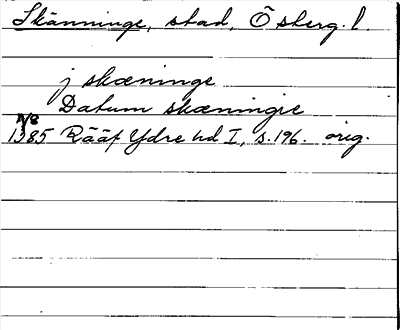 Skänninge, stad, Ö sterg. l.
j skæninge
Datum skæningie
11/8
1385 Rääf Ydre hd I, s. 196. orig.